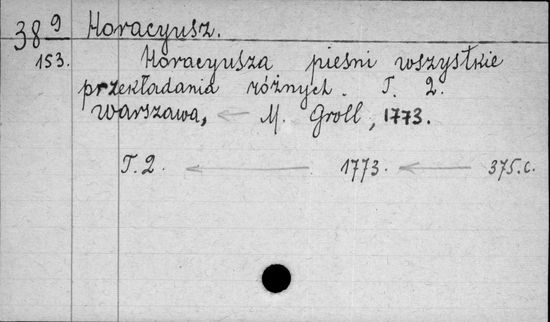 38 9/153.
Horacyusz.
Horacyusza pieśni wszystkie
przekładania różnych. T. 2.
Warszawa, ← M. Groll, 1773.
T. 2. ← 1773. ← 375.c.